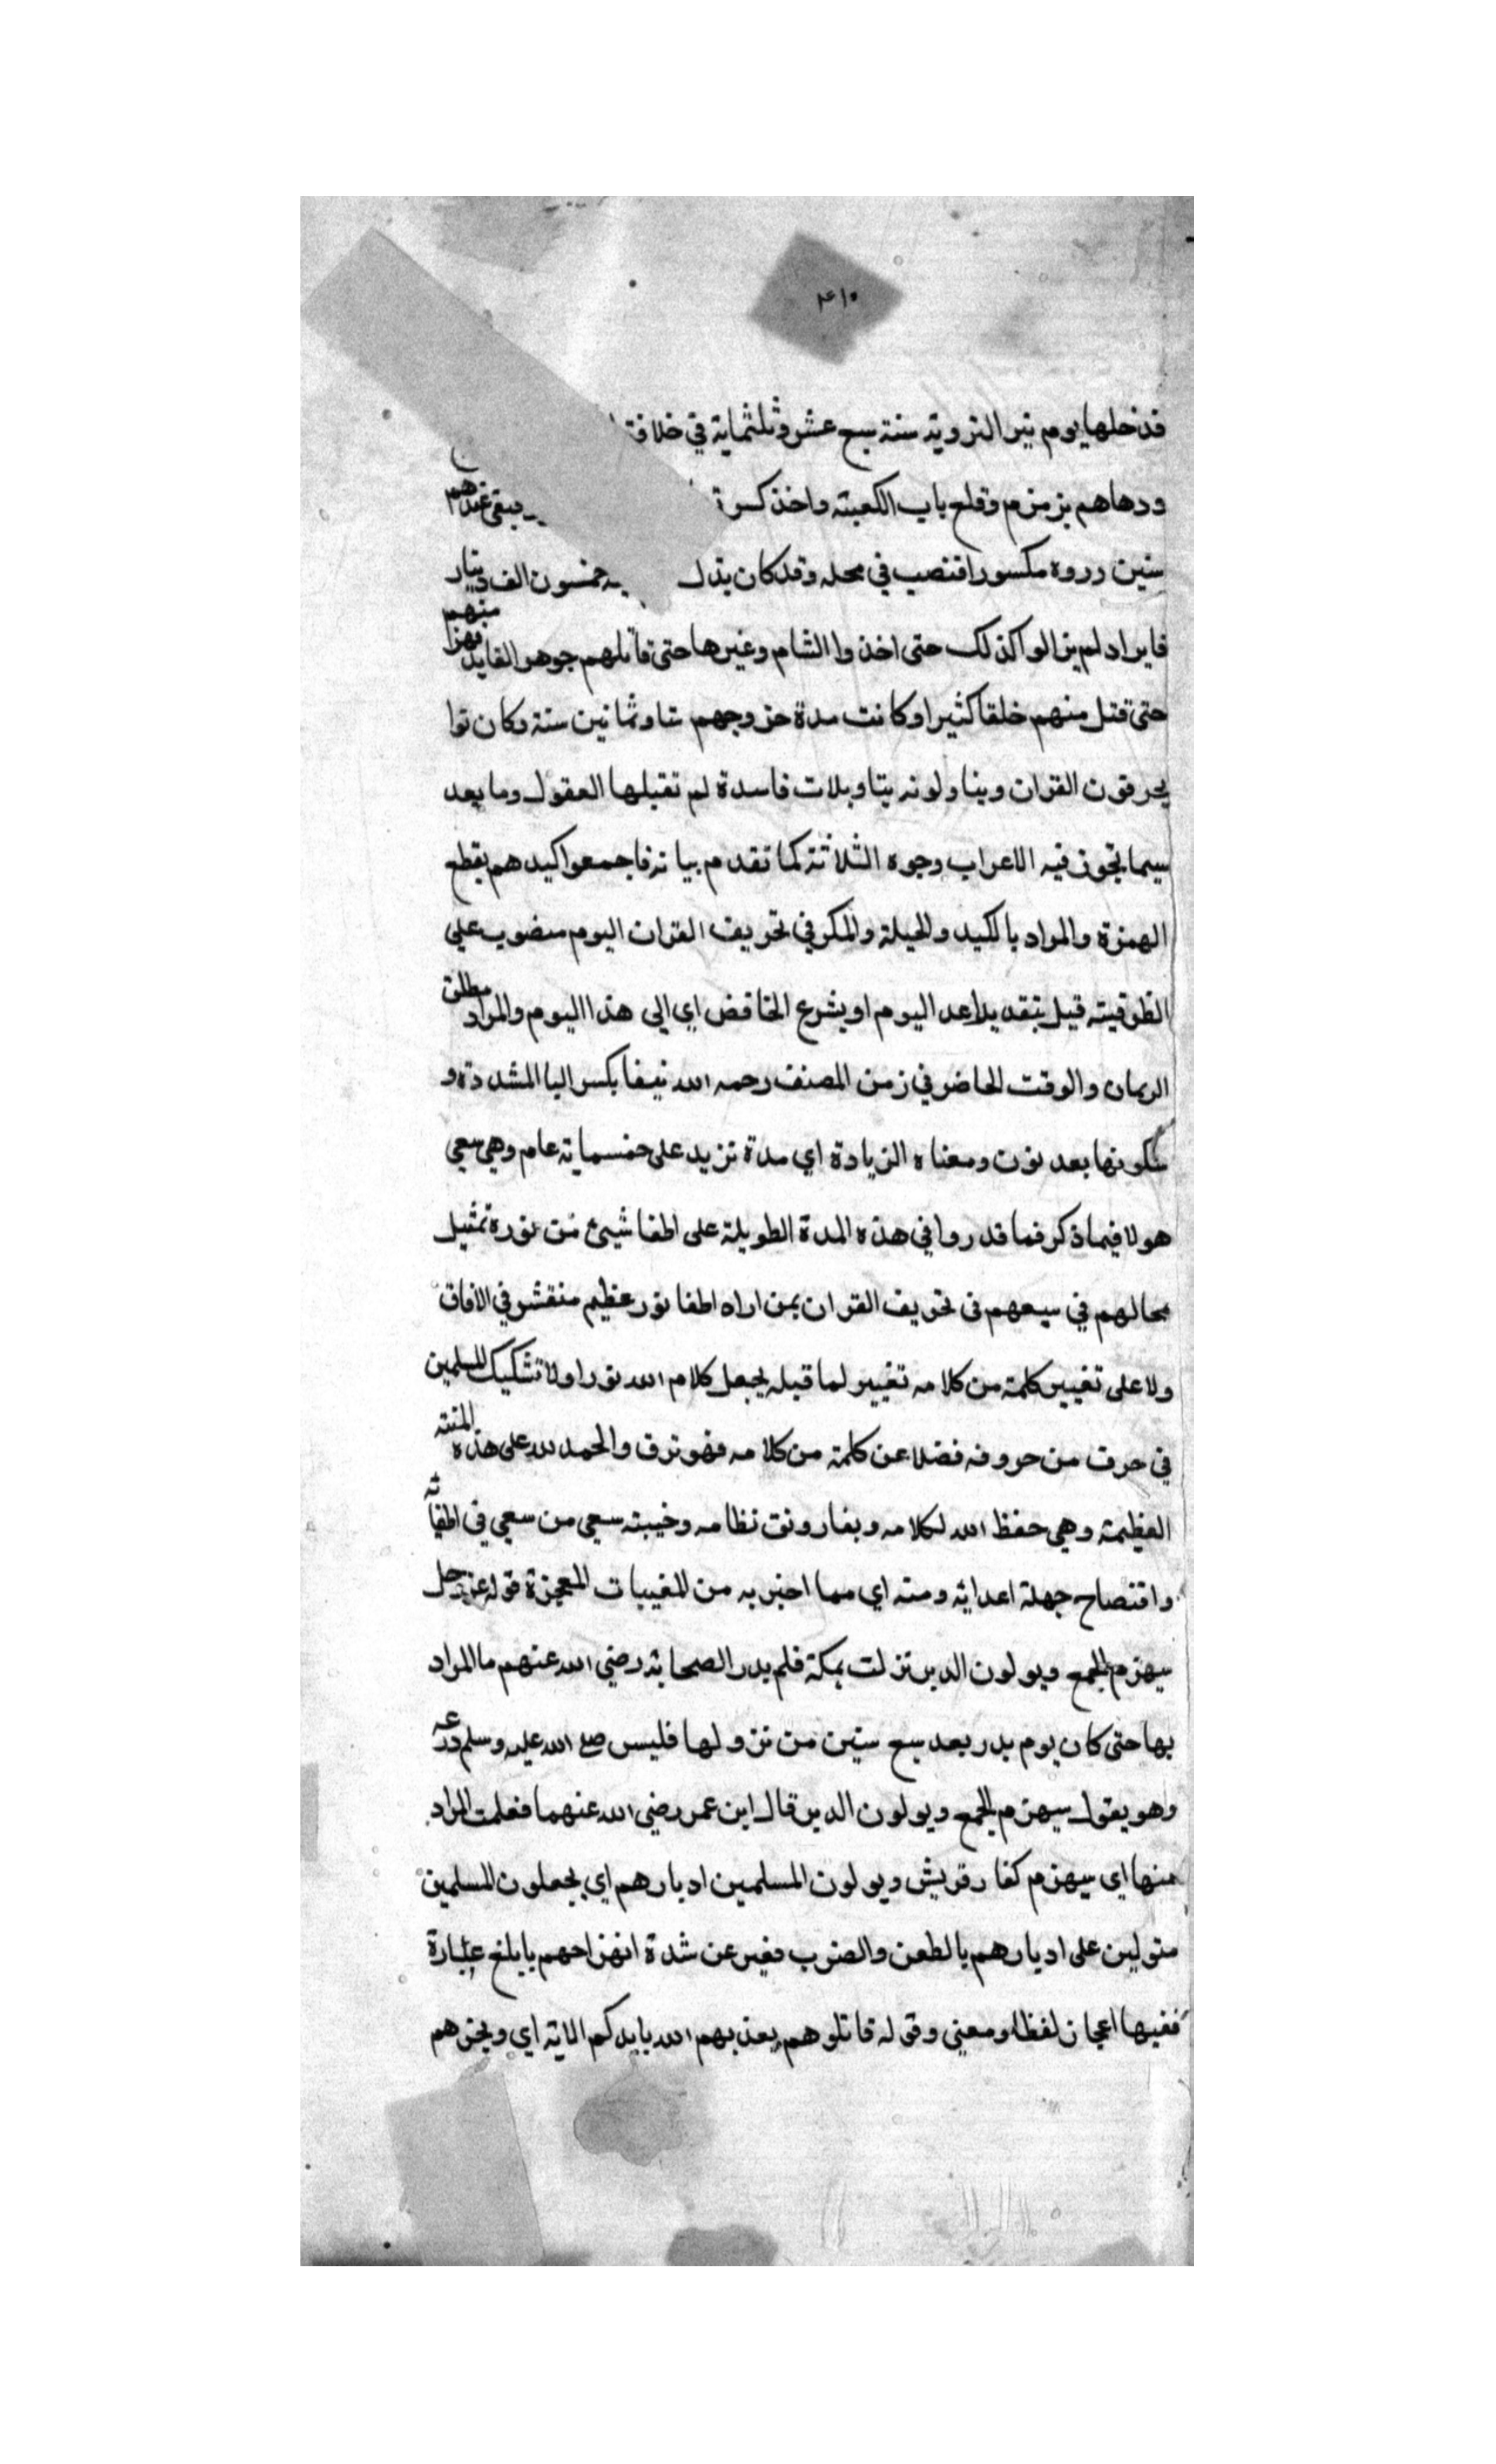 ٤١٥
فدخلها يوم بير التروية سنة سبع عشر وثلثماية في خلافة
ورماهم بزمزم وقلع باب الكعبة واخذ كسوة فبقي عندهم
سنين وردوه مكسورا فنصب في محله وقد كان بذل خمسون الف دينار
فا يزالوا كذلك حتى اخذوا الشام وغيرها حتى قاتلهم جوهر القايد فهزا منهم
حتى قتل منهم خلقا كثيرا وكانت مدة خروجهم ستا وثمانين سنة وكان نوا
يحرفون القران ويتاولونه بتاويلات فاسدة لم تقبلها العقول وما بعد
سيما يجوز فيه الاعراب وجوه الثلاثة كما تقدم بيانه فاجمعوا كيدهم بقطع
الهمزة والمراد بالكيد والحيلة والمكر في تحريف القران اليوم منصوب على
الظرفية قيل بتقدير عد اليوم او بنزع الخافض اي الى هذا اليوم والمراد مطلق
الزمان والوقت الحاضر في زمن المصنف رحمه الله نيفا بكسر اليا المشددة و
سكونها بعد نون ومعناه الزيادة اي مدة تزيد على خمسماية عام وهي سعي
هولا فيما ذكر فما قدروا في هذه المدة الطويلة على اطفا شيئ من نوره تمثيل
محالهم في سيعهم في تحريف القران بمن اراد اطفا نور عظيم منقشر في الافاق
ولا على تغيير كلمة من كلامه تغيير لما قبله بجعل كلام الله نورا ولا تشكيك المسلمين
في حرف من حروفه فضلا عن كلمة من كلامه فهو ترق والحمد لله على هذه المنته
العظيمة وهي حفظ الله لكلامه وبقا رونق نظامه وخيبته سعي من سعي في اطفائه
وافتضاح جهلة اعدائه ومنه اي مما اخبر به من المغيبات المعجزة قوله عز وجل
سيهزم الجمع ويولون الدبر نزلت بمكة فلم يدر الصحابة رضي الله عنهم ما المراد
بها حتى كان يوم بدر بعد سبع سنين من نزولها فلبس صلع الله عليه وسلم درعه
وهو يقول سيهزم الجمع ويولون الدبر قال ابن عمر رضي الله عنهما فعلمت المراد
منها اي سيهزم كفار قريش ويولون المسلمين ادبارهم اي يجعلون المسلمين
متولين على ادبارهم بالطعن والضرب فعبر عن شدة انهزامهم بابلغ عبارة
ففيها اعجاز لفظا ومعنى وقوله قاتلوهم يعذبهم الله بايديكم الاية اي ويخزهم